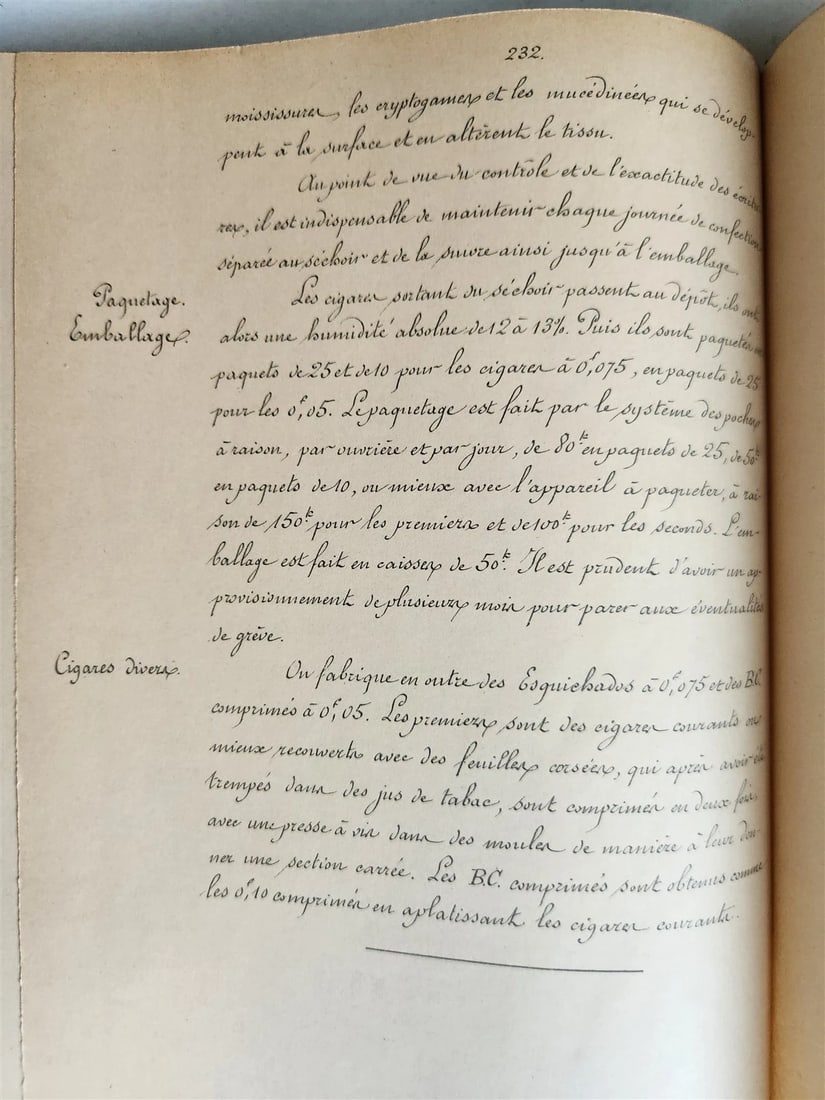 232.
moisissures, les cryptogames et les mucédinées qui se dévelop-
pent à la surface et en altèrent le tissu.
Au point de vue du contrôle et de l'exactitude des écritu
res, il est indispensable de maintenir chaque journée de confection
séparée au séchoir et de la suivre ainsi jusqu'à l'emballage.
Paquetage.
Emballage.
Les cigares sortant du séchoir passent au dépôt, ils ont
alors une humidité absolue de 12 à 13%. Puis ils sont paquetés en
paquets de 25 et de 10 pour les cigares à 0f,075, en paquets de 25
pour les 0f,05. Le paquetage est fait par le système des poches
à raison, par ouvrière et par jour, de 80k en paquets de 25, de 50k
en paquets de 10, ou mieux avec l'appareil à paqueter, à rai-
son de 150k pour les premiers et de 100k pour les seconds. L'em-
ballage est fait en caisses de 50k. Il est prudent d'avoir un ap-
provisionnement de plusieurs mois pour parer aux éventualités
de grève.
Cigares divers.
On fabrique en outre des Esquichados à 0f,075 et des B.C.
comprimés à 0f,05. Les premiers sont des cigares courants ou
mieux recouverts avec des feuilles corsées, qui après avoir été
trempés dans des jus de tabac, sont comprimés en deux fois,
avec une presse à vis dans des moules de manière à leur don-
ner une section carrée. Les B.C. comprimés sont obtenus comme
les 0f,10 comprimés en aplatissant les cigares courants.